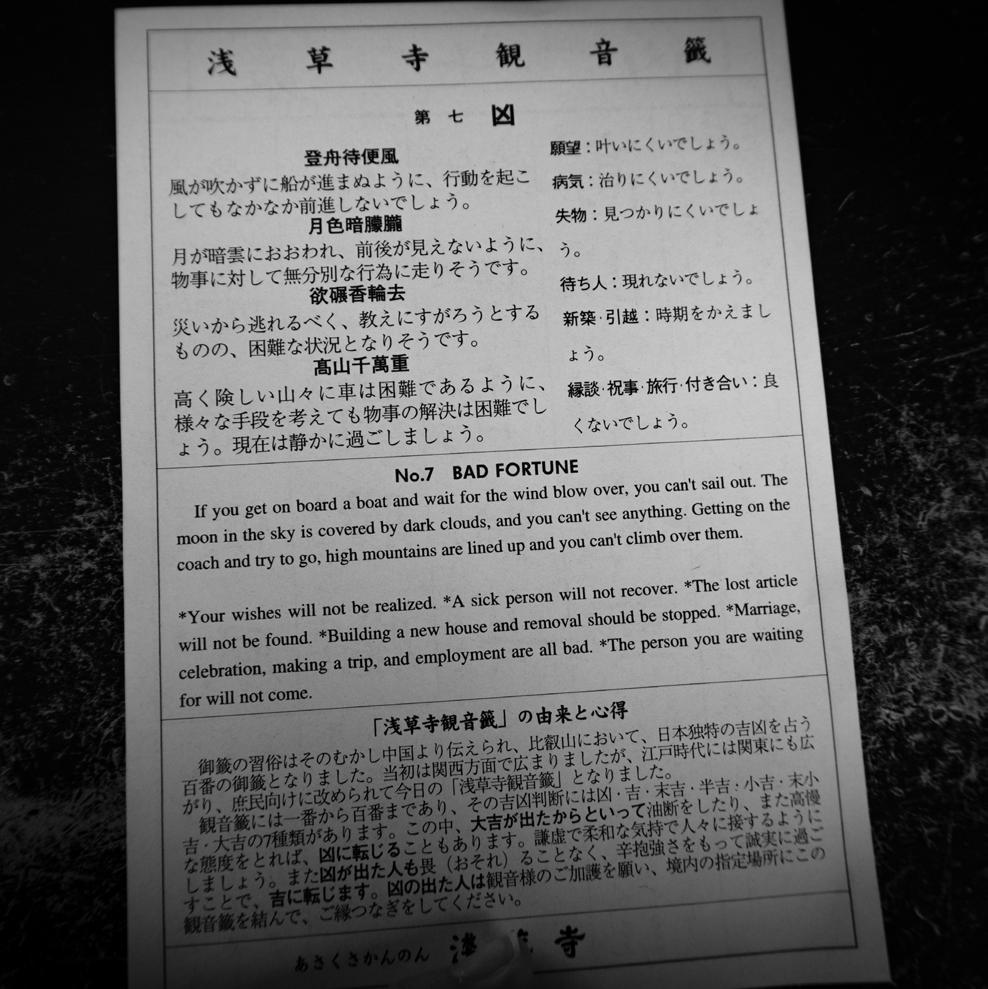 浅草寺観音籤
第七 凶
登舟待便風
風が吹かずに船が進まぬように、行動を起こ
してもなかなか前進しないでしょう。
月色暗朦朧
月が暗雲におおわれ、前後が見えないように、
物事に対して無分別な行為に走りそうです。
欲碾香輪去
災いから逃れるべく、教えにすがろうとする
ものの、困難な状況となりそうです。
髙山千萬重
高く険しい山々に車は困難であるように、
様々な手段を考えても物事の解決は困難でし
ょう。現在は静かに過ごしましょう。
願望：叶いにくいでしょう。
病気：治りにくいでしょう。
失物：見つかりにくいでしょ
う。
待ち人：現れないでしょう。
新築·引越：時期をかえまし
ょう。
縁談·祝事·旅行·付き合い：良
くないでしょう。
No.7 BAD FORTUNE
If you get on board a boat and wait for the wind blow over, you can't sail out. The
moon in the sky is covered by dark clouds, and you can't see anything. Getting on the
coach and try to go, high mountains are lined up and you can't climb over them.
*Your wishes will not be realized. *A sick person will not recover. *The lost article
will not be found. *Building a new house and removal should be stopped. *Marriage,
celebration, making a trip, and employment are all bad. *The person you are waiting
for will not come.
「浅草寺観音籤」の由来と心得
御籤の習俗はそのむかし中国より伝えられ、比叡山において、日本独特の吉凶を占う
百番の御籤となりました。当初は関西方面で広まりましたが、江戸時代には関東にも広
がり、庶民向けに改められて今日の「浅草寺観音籤」となりました。
観音籤には一番から百番まであり、その吉凶判断には凶·吉·末吉·半吉·小吉·末小
吉·大吉の7種類があります。この中、大吉が出たからといって油断をしたり、また高慢
な態度をとれば、凶に転じることもあります。謙虚で柔和な気持で人々に接するように
しましょう。また凶が出た人も畏（おそれ）ることなく、辛抱強さをもって誠実に過ご
すことで、吉に転じます。凶の出た人は観音様のご加護を願い、境内の指定場所にこの
観音籤を結んで、ご縁つなぎをしてください。
あさくさかんのん 寺